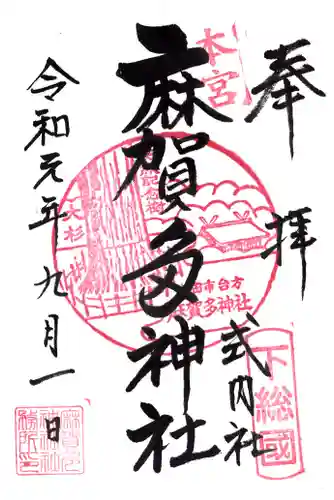 奉拝
本宮
麻賀多神社
式内社
下総國
大杉
成田市台方
麻賀多神社
令和元年九月一日